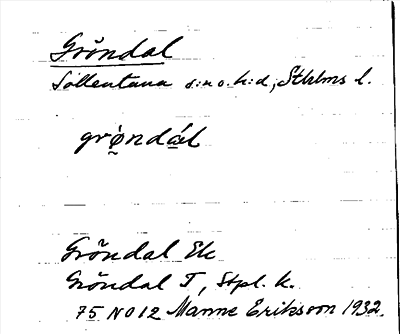 Gröndal
Sollentuna s:n o. h:d, Sthlms l.
grø̀ndál
Gröndal Ek
Gröndal T, Stpl. k.
75 NO 12 Manne Eriksson 1932.